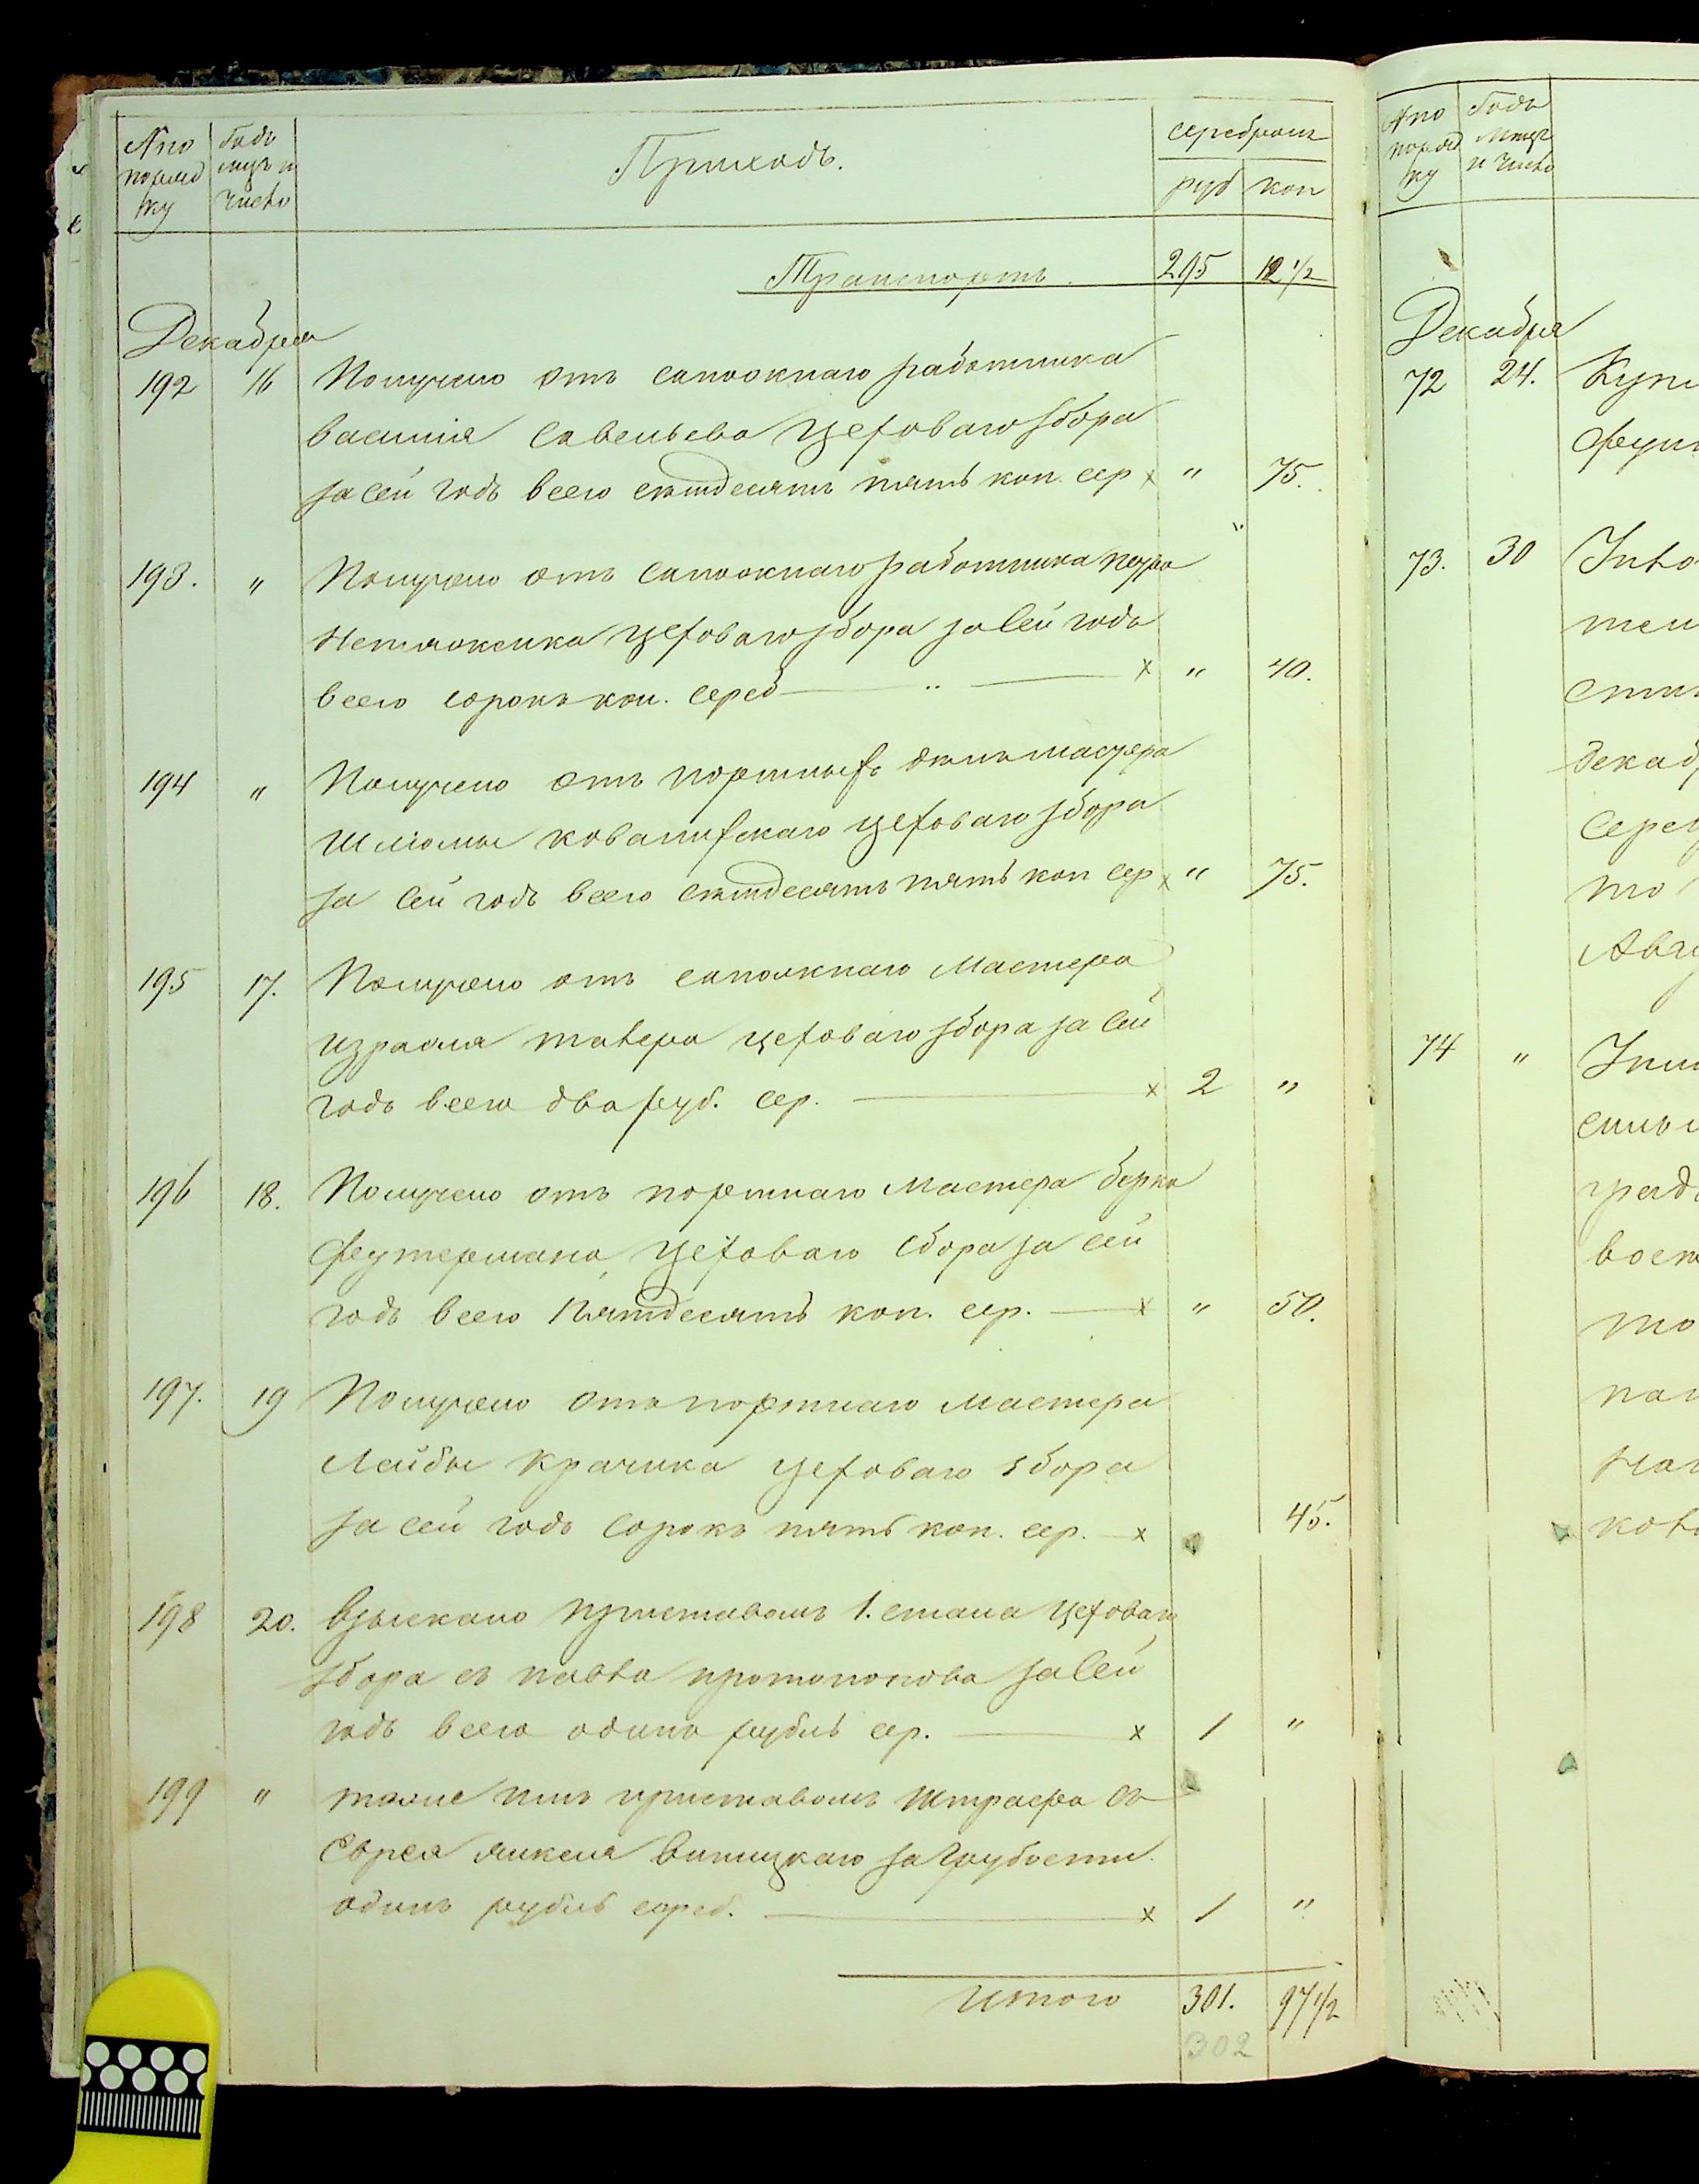 № по порядку
Годъ мцъ и число
Приходъ.
серебромъ
руб коп
Транспортъ. 295 12 1/2
Декабря
192 16 Получено отъ сапожнаго работника
Василія Савельева цеховаго збора
за сей годъ всего семдесятъ пять коп. сер х " 75.
193. " Получено отъ сапожнаго работника Петра
цеховаго збора за сей годъ
всего сорокъ коп. сереб — " — х " 40.
194 " Получено отъ портныхъ дѣлъ мастера
Шлиомы цеховаго збора
за сей годъ всего семдесятъ пять коп сер х " 75.
195 17. Получено отъ сапожнаго мастера
Израиля цеховаго збора за сей
годъ всего два руб. сер. — х 2 "
196 18. Получено отъ портнаго мастера Берка
Футермана, цеховаго сбора за сей
годъ всего пятдесятъ коп. сер. — х " 50.
197. 19 Получено отъ портнаго мастера
Лейбы Крачика цеховаго збора
за сей годъ сорокъ пять коп. сер. — х 45.
198 20. Взыскано приставомъ 1. стана цеховаго
збора съ Павла Протопопова за сей
годъ всего одинъ рубль сер. — х 1 "
199 " приставомъ штрафа съ
Еврея Янкеля Виницкаго за грубости
одинъ рубль сереб. — х 1 "
Итого 301. 97 1/2
302
№ по порядку
Годъ мтцъ и число
Декабря
72 24. Купл
73. 30
декаб
74 "